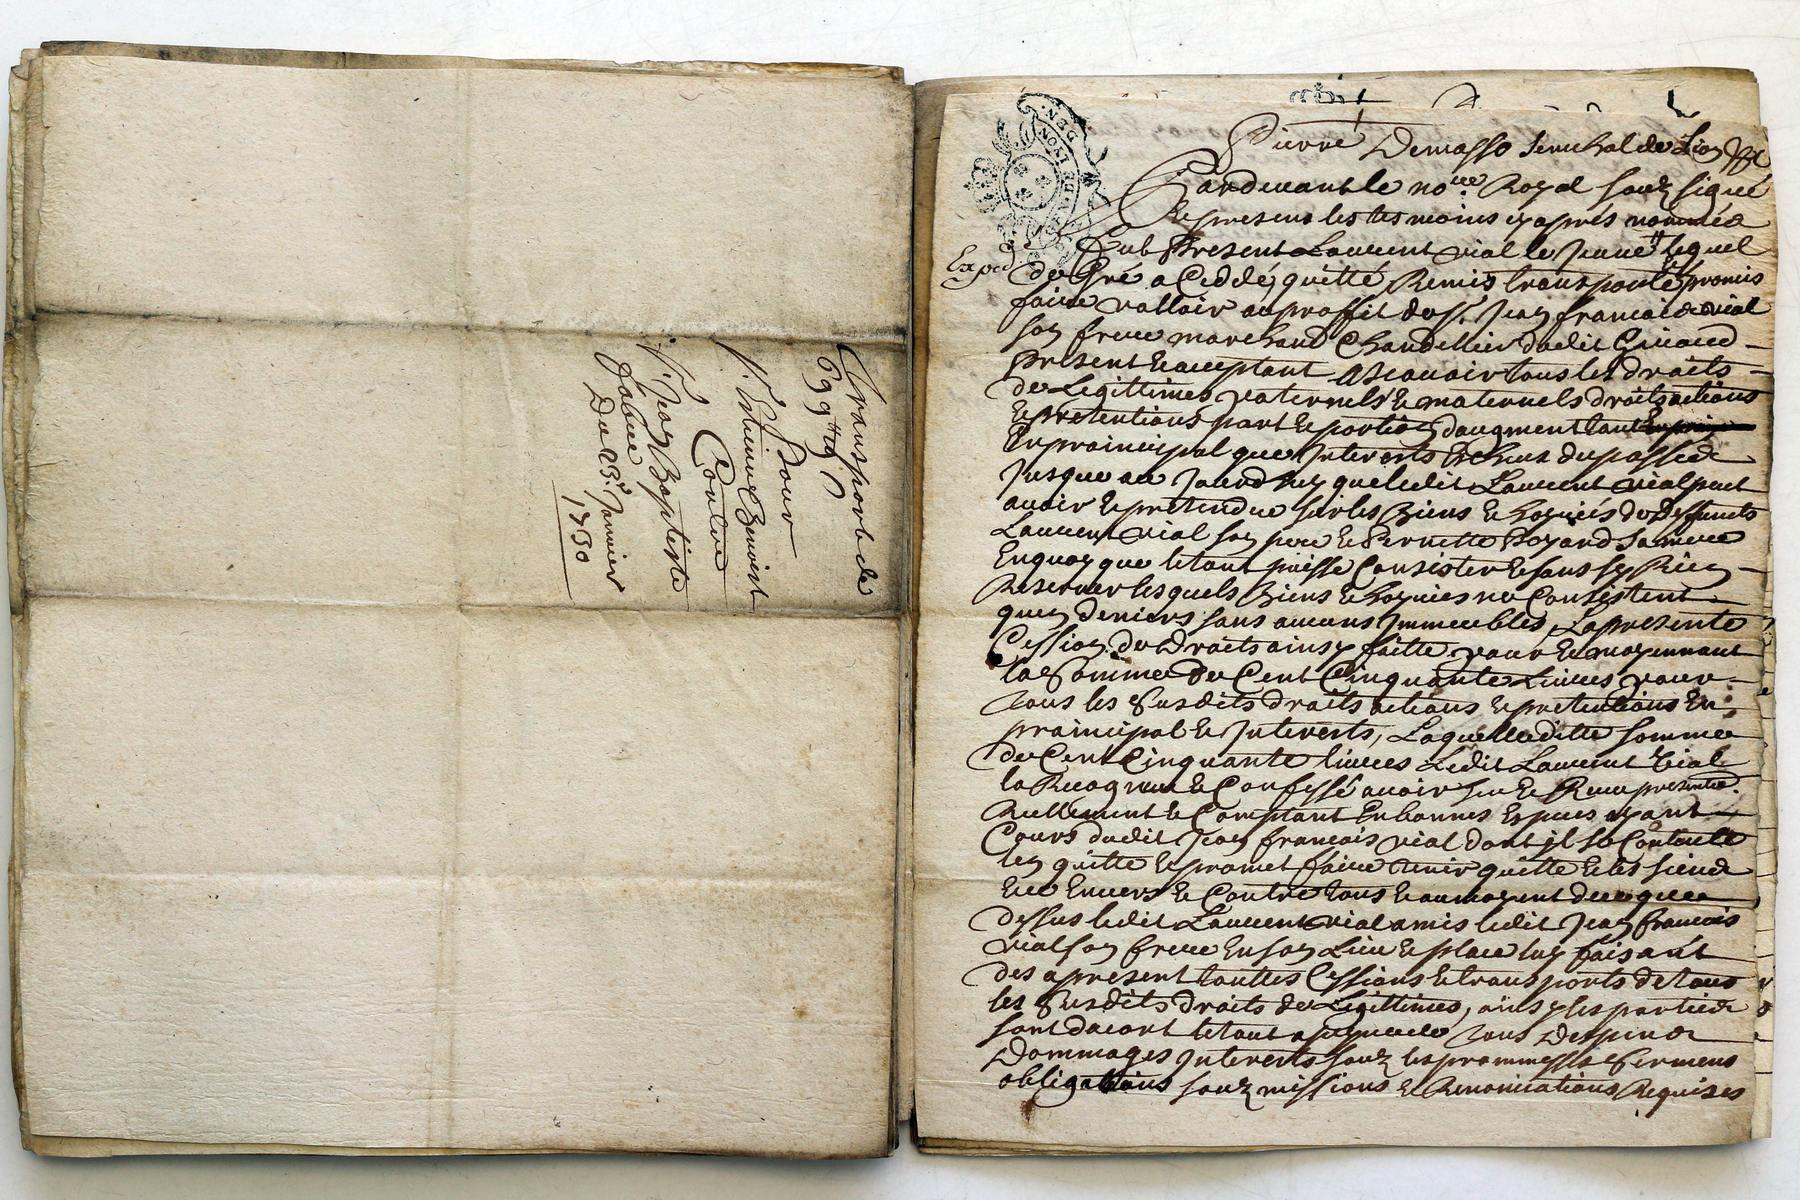 Transport de
699ᵗᵗ 19ˢ
Pour
Sʳ. Estienne Benoist
Coulve
Sʳ. Jean Baptiste
fabre
Du 23ᵉ. Janvier
1730
DEN.
LYON
Pierre Demasso senechal de Lion
Pardevant le noʳᵉ Royal souz signé
Et presens les tesmoins cy aprés nommés
Fut Present Laurent vial le Jeune lequel
Exped
de Gré a Ceddé, quitté Remis transporté promis
faire valloir au proffit de sʳ. Jean francois vial
son frere marchand Chandellier dudit
Present et acceptant Ascavoir tous les droits
de Legittimes paternels et maternels droits actions
et pretentions part et portion daugment tant
En praincipal que Interests Escheus du passé
Jusque au Jourdhuy que ledit Laurent vial peut
avoir et pretendre sur les Biens et hoyries de deffuncts
Laurent vial son pere et Pernette Boyard sa mere
En quoy que letout puisse Consister et sans sy Rien
Reserver lesquels Biens et hoyries ne Consistent
quen deniers sans aucuns Immeubles, La presente
Cession de Droits ainsy faitte pour et moyennant
la Somme de Cent Cinquante Livres pour
tous les Susdits droits actions et pretentions En
praincipal et Interests, Laquelle ditte somme
de Cent Cinquante livres Ledit Laurent Vial
la Recognu et Confessé avoir heu et Receu presentᵗ.
Reellement et Comptant En bonnes Especes ayant
Cours dudit Jean francois vial dont il se Contente
len quitte et promet faire tenir quitte et les siens
Envers et Contre tous et au moyent de ce que
dessus ledit Laurent vial a mis ledit Jean francois
vial son frere En son Lieu et place luy faisant
des apresent touttes Cessions et transports de tous
les Susdits droits de Legittimes, ainsy les parties
sont dacort letout a peyne de tous Despens
Dommages Interests souz les prommesses serments
obligations souzmissions et Renonciations Requises